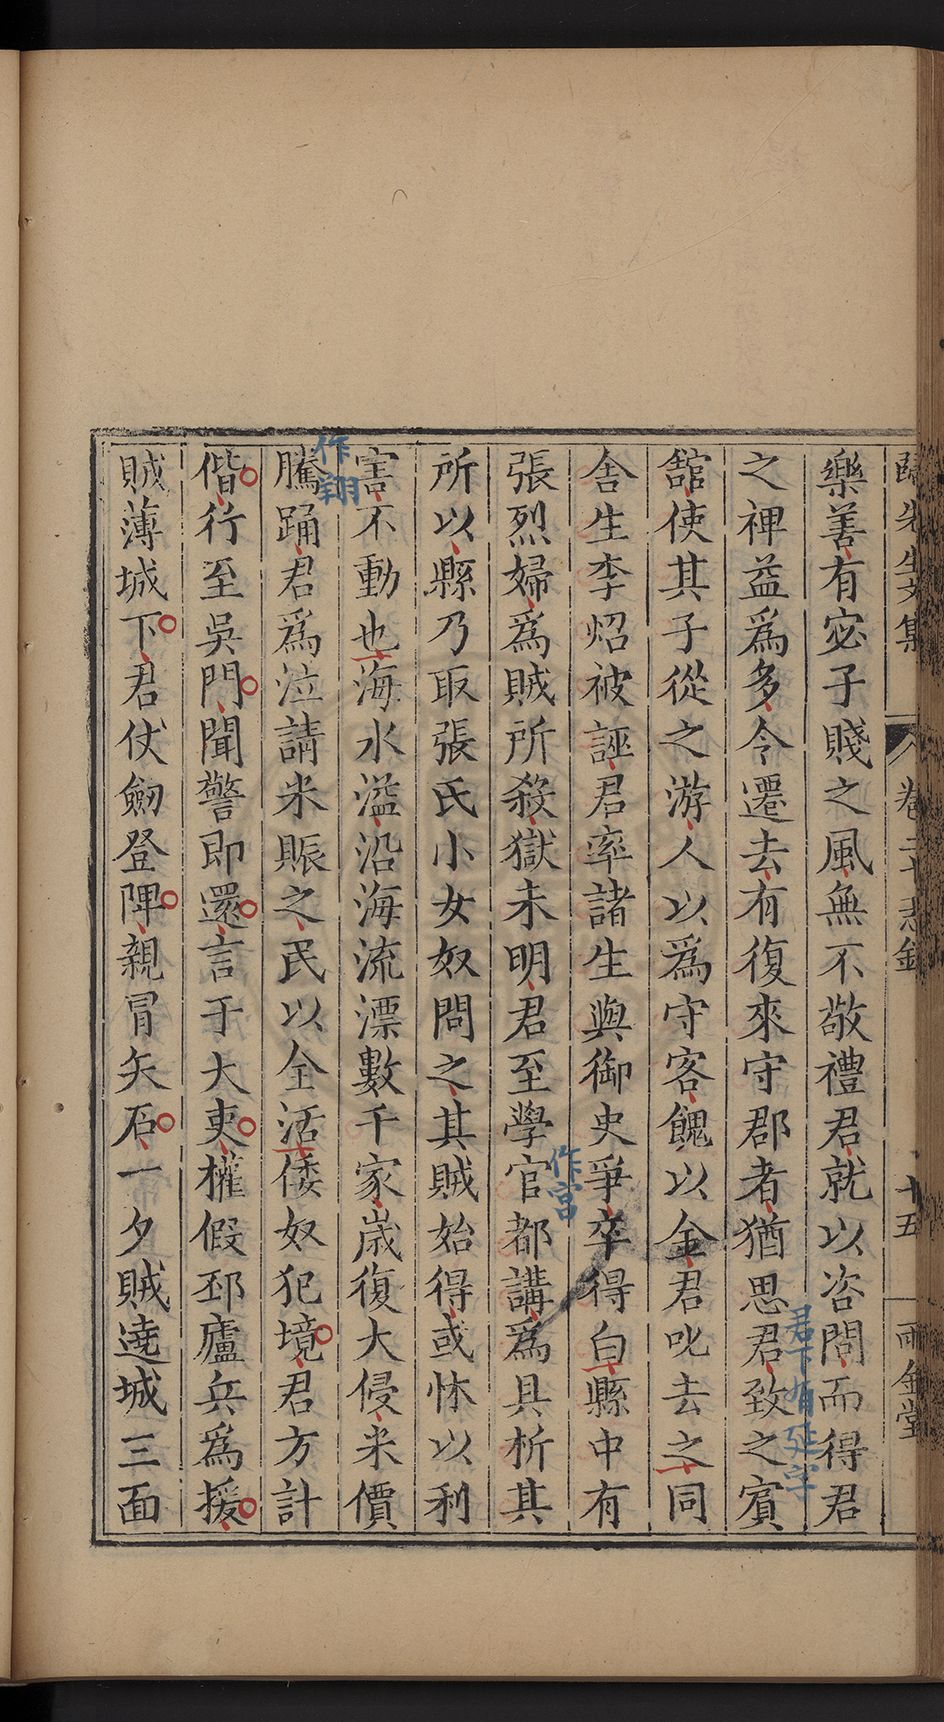 歸先生文集
卷二十 志銘
十五
雨金堂
樂善有宓子賤之風無不敬禮君就以咨問而得君
之禆益爲多令遷去有復來守郡者猶思君致之賓
君下有延字
舘使其子從之游人以爲守客餽以金君叱去之同
舍生李炤被誣君率諸生與御史爭卒得白縣中有
作宮
張烈婦爲賊所殺獄未明君至學官都講爲具析其
所以縣乃取張氏小女奴問之其賊始得或怵以利
害不動也海水溢沿海流漂數千家歲復大侵米價
作翔
騰踊君爲泣請米賑之民以全活倭奴犯境君方計
偕行至吳門聞警即還言于大吏權假邳廬兵爲援
賊薄城下君仗劒登陴親冒矢石一夕賊遶城三面